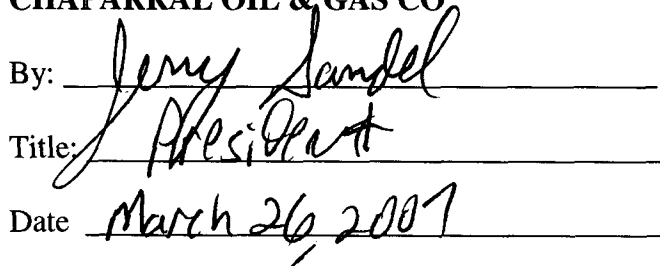 CHAPARRAL OIL & GAS CO
By: Jerry Sandel
Title: President
Date March 26, 2007